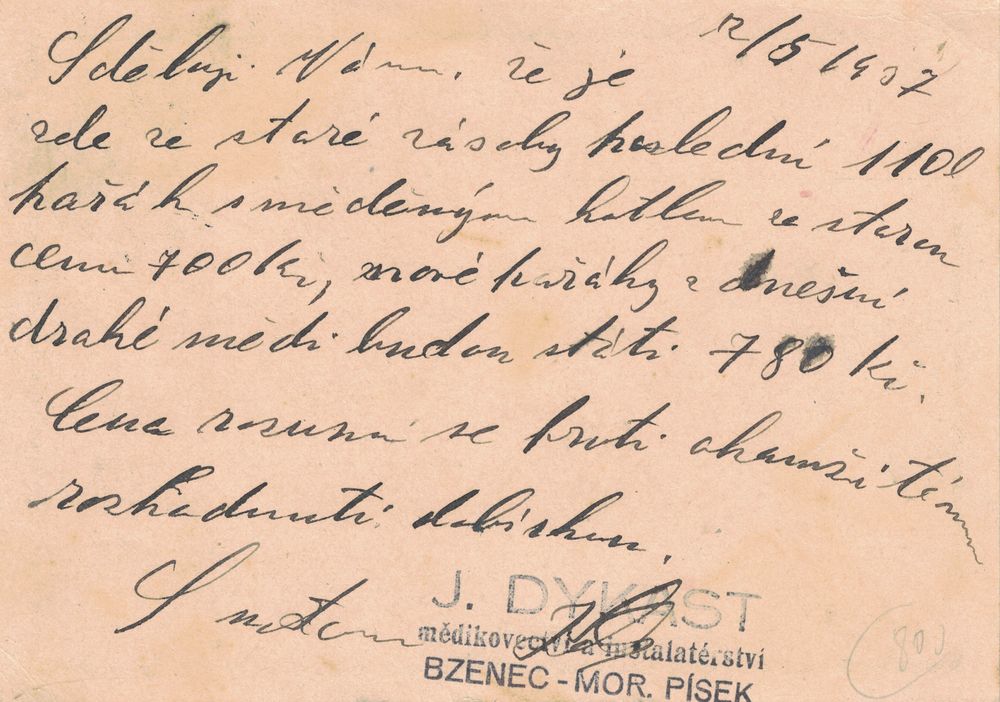 12/5 1937
Sděluji Vám, že je
zde ze staré zásoby poslední 110l
pařák s měděným kotlem za starou
cenu 700 Kč, nové pařáky z dnešní
drahé mědi budou státi 780 Kč.
Cena rozumí se proti okamžitému
rozhodnutí dobírkou.
S úctou
J. DYKAST
mědikovectví a instalatérství
BZENEC - MOR. PÍSEK
800